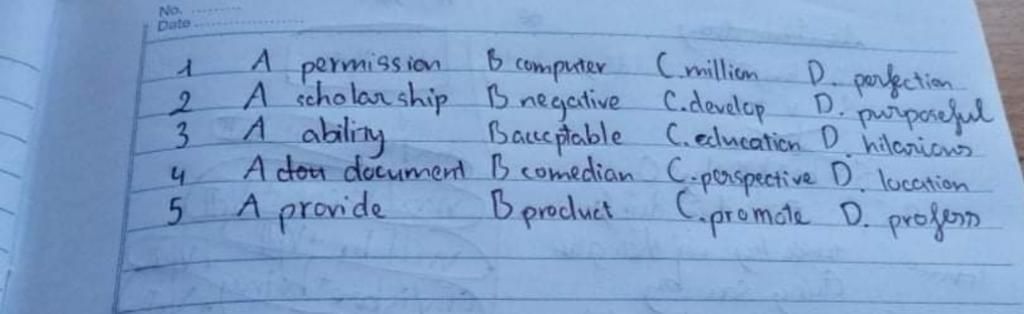 No. ..........
Date ......................
1 A permission B computer C. million D. perfection
2 A scholarship B negative C. develop D. purposeful
3 A ability B acceptable C. education D. hilarious
4 A document B comedian C. perspective D. location
5 A provide B product C. promote D. profess